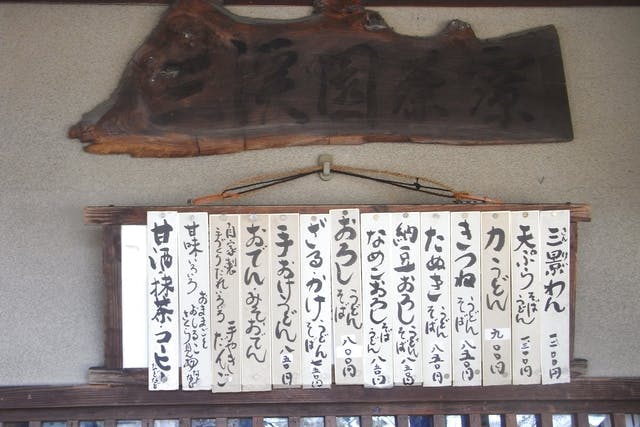 三景園茶寮
三景わん 一二〇〇円
天ぷら うどん そば 一三〇〇円
力うどん 九〇〇円
きつね うどん そば 八五〇円
たぬき うどん そば 八五〇円
納豆おろし うどん そば 八五〇円
なめこおろし そば うどん 八五〇円
おろし うどん そば 八〇〇円
ざる・かけ うどん そば 七五〇円
手おけうどん 八五〇円
おでん・みそおでん
自家製 手づくりたれ いろいろ 手やきだんご
甘味いろいろ おしるこ
甘酒・抹茶・コーヒー